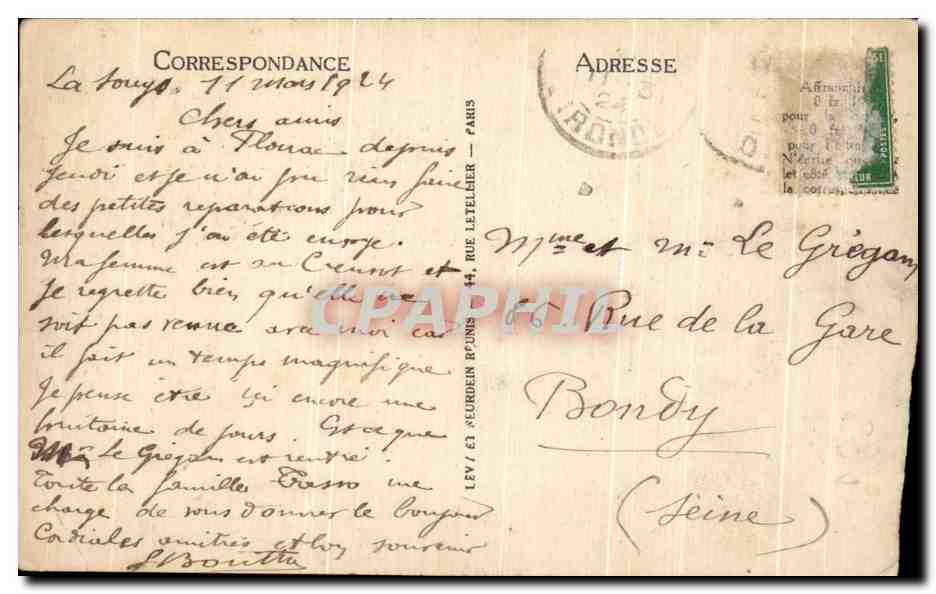 CORRESPONDANCE
La Souys. 11 mars 1924
Chers amis
Je suis à Floirac depuis
Jeudi et je n'ai pu rien faire
des petites reparations pour
lesquelles j'ai été envoyé.
Ma femme est au Creusot et
je regrette bien qu'elle ne
soit pas venue avec moi car
il fait un temps magnifique
Je pense être ici encore une
huitaine de jours. Est ce que
Le Grégam est rentré.
Toute la famille me
charge de vous donner le bonjour
Cordiales amitiés et bon souvenir
LEVY ET NEURDEIN RÉUNIS — 44, RUE LETELLIER — PARIS
ADRESSE
GIRONDE
Affranchir
0 fr.
pour la
0 fr.
pour l'étr
N'écrire que
et côté
la correspondance
POSTES
Mme et Mr Le Grégam
66 Rue de la Gare
Bondy
(Seine)
CPAPHIL